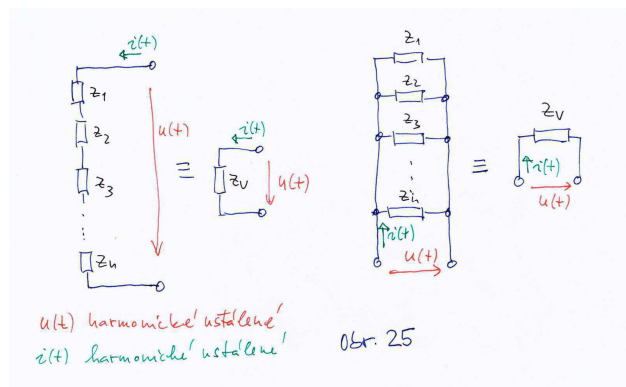 i(t)
Z1
Z2
u(t)
Z3
Zn
≡
i(t)
Zv
u(t)
Z1
Z2
Z3
Zn
i(t)
u(t)
≡
Zv
i(t)
u(t)
u(t) harmonické ustálené
i(t) harmonické ustálené
obr. 25